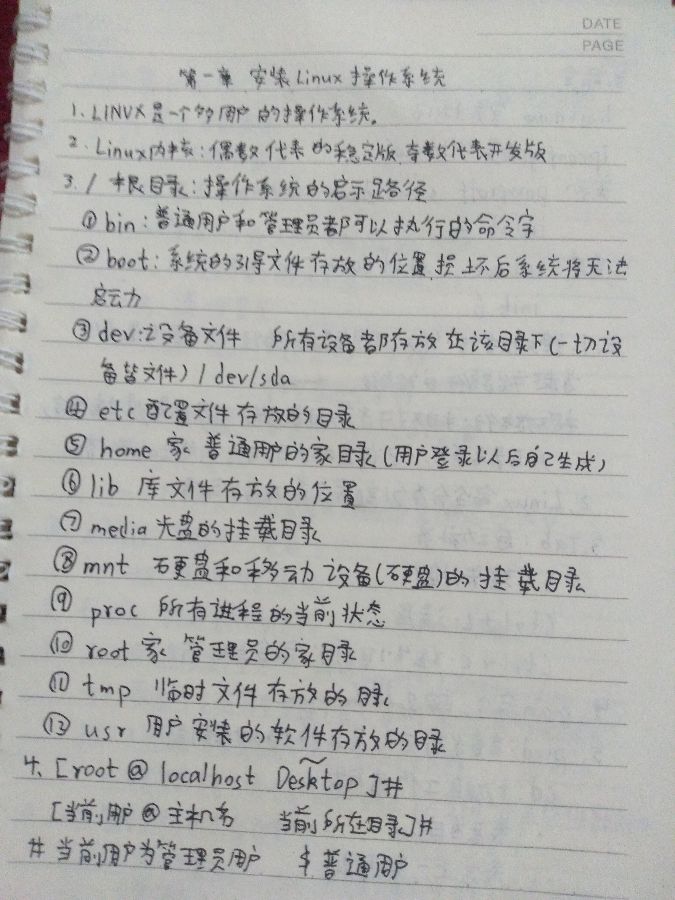 DATE
PAGE
第一章 安装Linux操作系统
1. LINUX是一个多用户的操作系统。
2. Linux内核:偶数代表的稳定版 奇数代表开发版
3. / 根目录:操作系统的启示路径
① bin:普通用户和管理员都可以执行的命令字
② boot:系统的引导文件存放的位置 损坏后系统将无法
启动
③ dev:设备文件 所有设备都存放在该目录下(一切设
备皆文件)/dev/sda
④ etc 配置文件存放的目录
⑤ home 家 普通用户的家目录(用户登录以后自己生成)
⑥ lib 库文件存放的位置
⑦ media 光盘的挂载目录
⑧ mnt 硬盘和移动设备(硬盘)的挂载目录
⑨ proc 所有进程的当前状态
⑩ root 家 管理员的家目录
⑪ tmp 临时文件存放的目录
⑫ usr 用户安装的软件存放的目录
4. [root @ localhost Desktop]# ~
[当前用户 @ 主机名 当前所在目录]#
# 当前用户为管理员用户 $ 普通用户